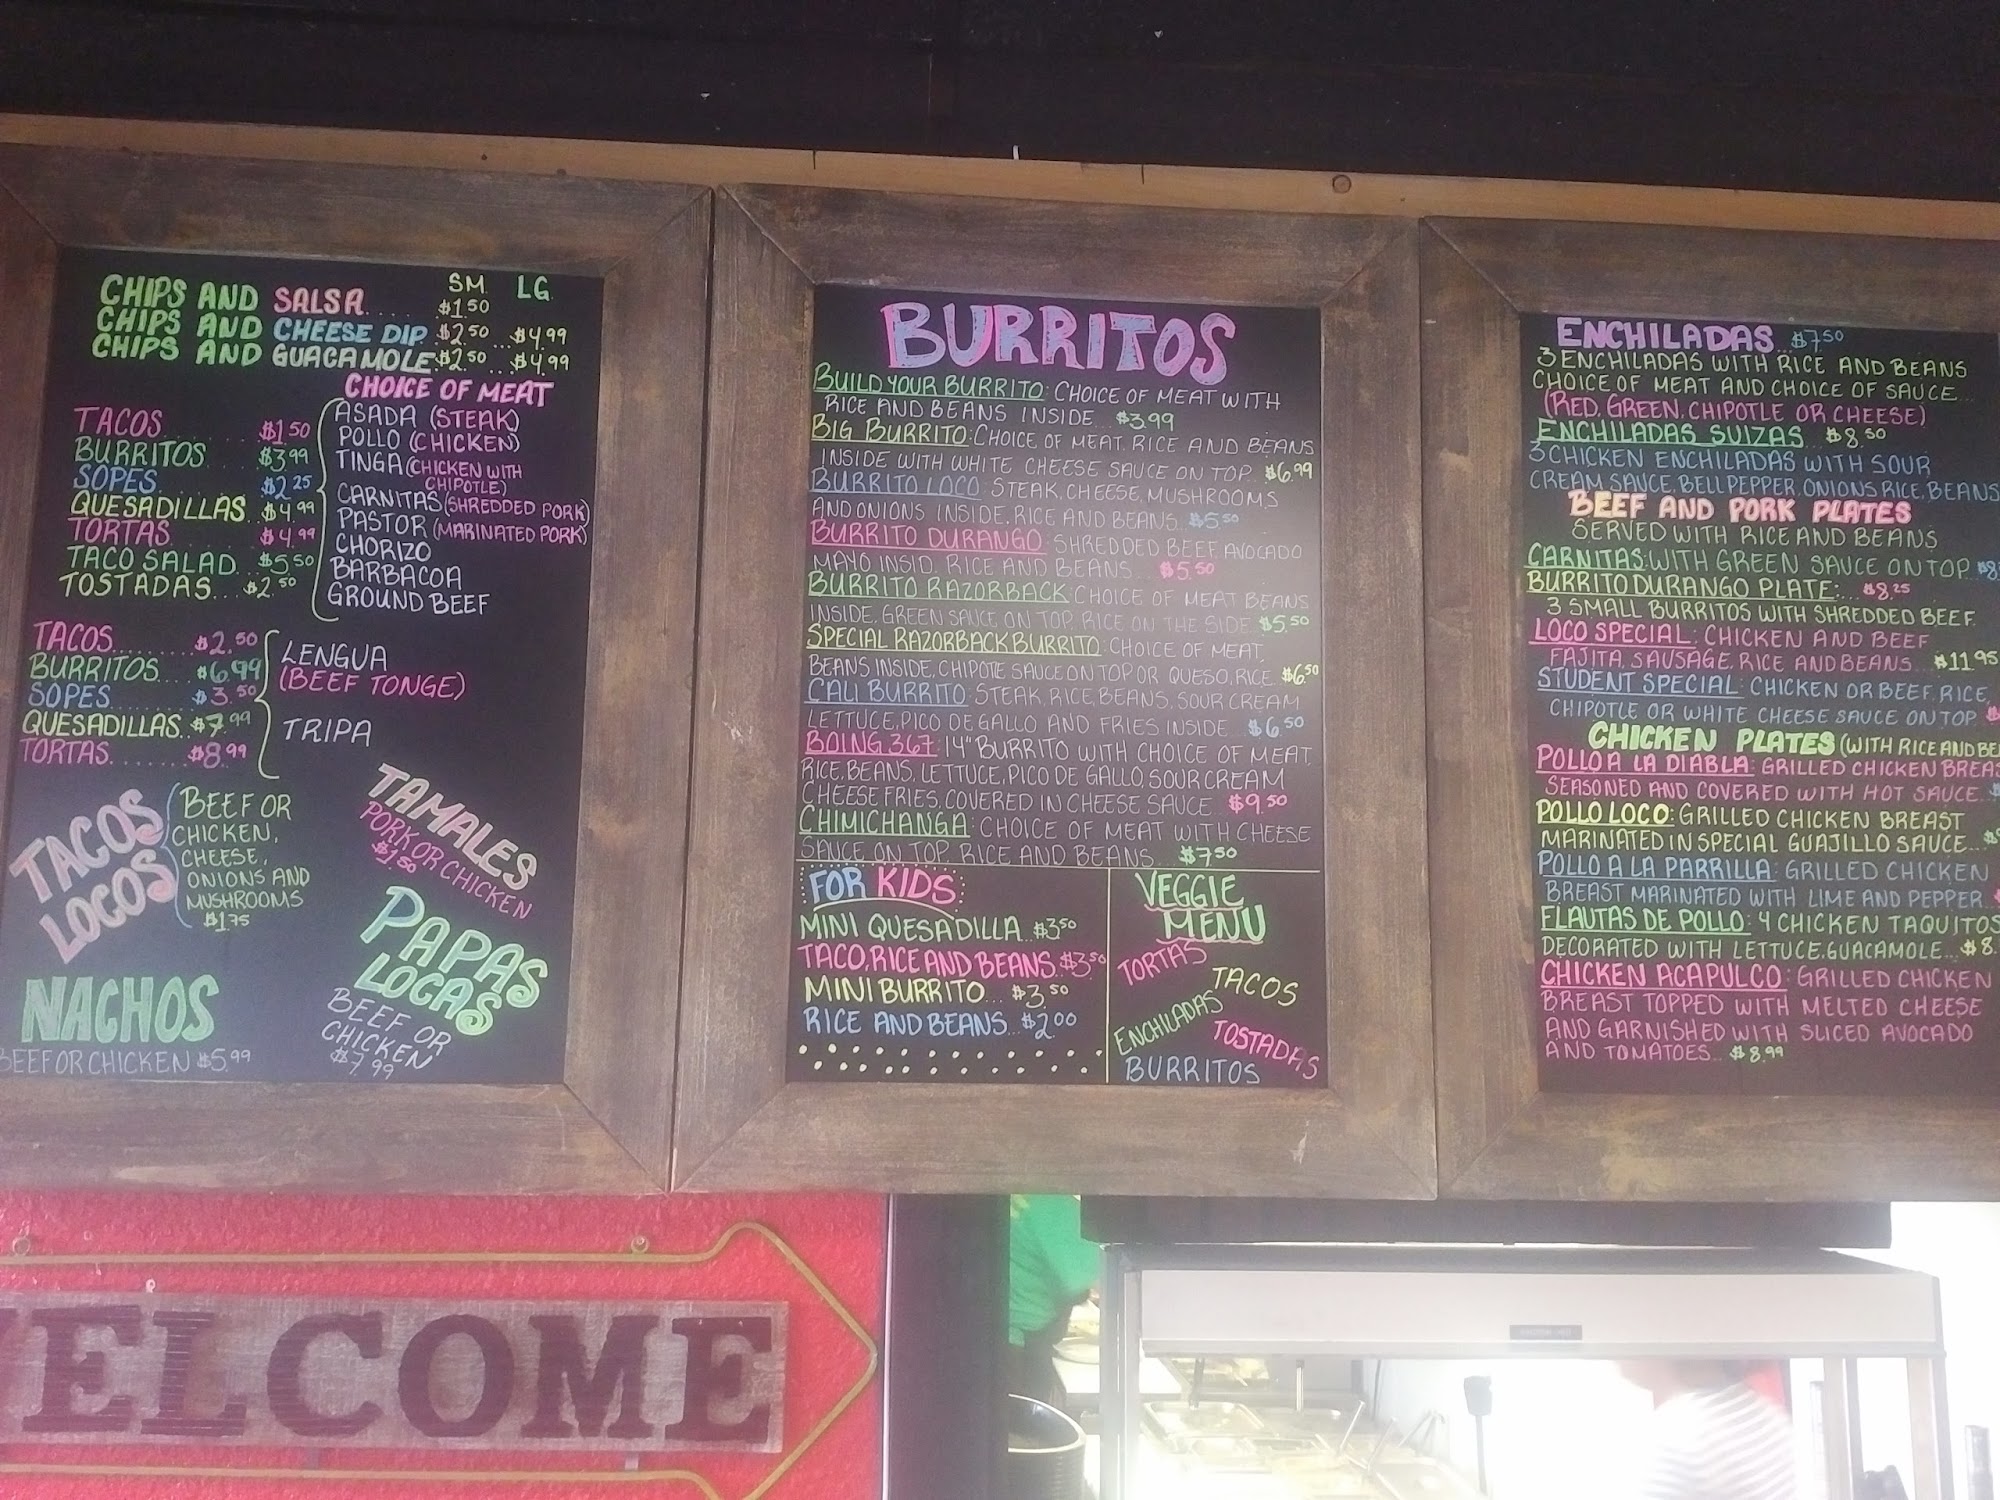 SM. LG.
CHIPS AND SALSA..... $1.50
CHIPS AND CHEESE DIP. $2.50... $4.99
CHIPS AND GUACAMOLE. $2.50... $4.99
CHOICE OF MEAT
TACOS.......... $1.50
BURRITOS..... $3.99
SOPES.......... $2.25
QUESADILLAS.. $4.99
TORTAS......... $4.99
TACO SALAD... $5.50
TOSTADAS... $2.50
ASADA (STEAK)
POLLO (CHICKEN)
TINGA (CHICKEN WITH
CHIPOTLE)
CARNITAS (SHREDDED PORK)
PASTOR (MARINATED PORK)
CHORIZO
BARBACOA
GROUND BEEF
TACOS......... $2.50
BURRITOS.... $6.99
SOPES......... $3.50
QUESADILLAS. $7.99
TORTAS........ $8.99
LENGUA
(BEEF TONGE)
TRIPA
TACOS
LOCOS
BEEF OR
CHICKEN,
CHEESE,
ONIONS AND
MUSHROOMS
$1.75
TAMALES
PORK OR CHICKEN
$1.50
NACHOS
BEEF OR CHICKEN $5.99
PAPAS
LOCAS
BEEF OR
CHICKEN
$7.99
BURRITOS
BUILD YOUR BURRITO: CHOICE OF MEAT WITH
RICE AND BEANS INSIDE... $3.99
BIG BURRITO: CHOICE OF MEAT, RICE AND BEANS
INSIDE WITH WHITE CHEESE SAUCE ON TOP. $6.99
BURRITO LOCO: STEAK, CHEESE, MUSHROOMS
AND ONIONS INSIDE, RICE AND BEANS.. $5.50
BURRITO DURANGO: SHREDDED BEEF, AVOCADO
MAYO INSID, RICE AND BEANS.... $5.50
BURRITO RAZORBACK: CHOICE OF MEAT BEANS
INSIDE, GREEN SAUCE ON TOP, RICE ON THE SIDE. $5.50
SPECIAL RAZORBACK BURRITO: CHOICE OF MEAT,
BEANS INSIDE, CHIPOTLE SAUCE ON TOP OR QUESO, RICE. $6.50
CALI BURRITO: STEAK, RICE, BEANS, SOUR CREAM
LETTUCE, PICO DE GALLO AND FRIES INSIDE... $6.50
BOING 367: 14" BURRITO WITH CHOICE OF MEAT,
RICE, BEANS, LETTUCE, PICO DE GALLO, SOUR CREAM
CHEESE FRIES, COVERED IN CHEESE SAUCE. $9.50
CHIMICHANGA: CHOICE OF MEAT WITH CHEESE
SAUCE ON TOP, RICE AND BEANS.... $7.50
FOR KIDS
MINI QUESADILLA.. $3.50
TACO, RICE AND BEANS. $3.50
MINI BURRITO... $3.50
RICE AND BEANS... $2.00
VEGGIE
MENU
TORTAS
TACOS
ENCHILADAS
TOSTADAS
BURRITOS
ENCHILADAS... $7.50
3 ENCHILADAS WITH RICE AND BEANS
CHOICE OF MEAT AND CHOICE OF SAUCE...
(RED, GREEN, CHIPOTLE OR CHEESE)
ENCHILADAS SUIZAS... $8.50
3 CHICKEN ENCHILADAS WITH SOUR
CREAM SAUCE, BELL PEPPER, ONIONS RICE, BEANS
BEEF AND PORK PLATES
SERVED WITH RICE AND BEANS
CARNITAS: WITH GREEN SAUCE ON TOP. $8.
BURRITO DURANGO PLATE:... $8.25
3 SMALL BURRITOS WITH SHREDDED BEEF.
LOCO SPECIAL: CHICKEN AND BEEF
FAJITA, SAUSAGE, RICE AND BEANS... $11.95
STUDENT SPECIAL: CHICKEN OR BEEF, RICE,
CHIPOTLE OR WHITE CHEESE SAUCE ON TOP.
CHICKEN PLATES (WITH RICE AND BE
POLLO A LA DIABLA: GRILLED CHICKEN BREAS
SEASONED AND COVERED WITH HOT SAUCE...
POLLO LOCO: GRILLED CHICKEN BREAST
MARINATED IN SPECIAL GUAJILLO SAUCE...
POLLO A LA PARRILLA: GRILLED CHICKEN
BREAST MARINATED WITH LIME AND PEPPER.
FLAUTAS DE POLLO: 4 CHICKEN TAQUITOS
DECORATED WITH LETTUCE, GUACAMOLE... $8.
CHICKEN ACAPULCO: GRILLED CHICKEN
BREAST TOPPED WITH MELTED CHEESE
AND GARNISHED WITH SLICED AVOCADO
AND TOMATOES... $8.99
WELCOME